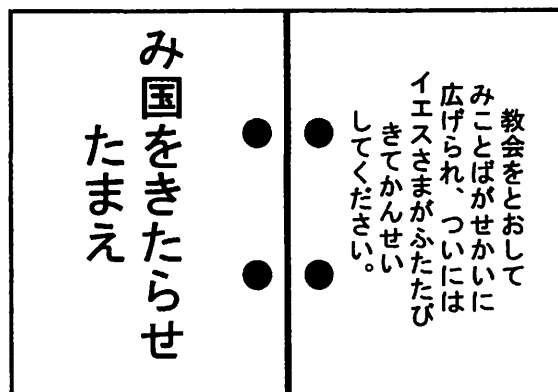 教会をとおして
みことばがせかいに
広げられ、ついには
イエスさまがふたたび
きてかんせい
してください。
み国をきたらせ
たまえ